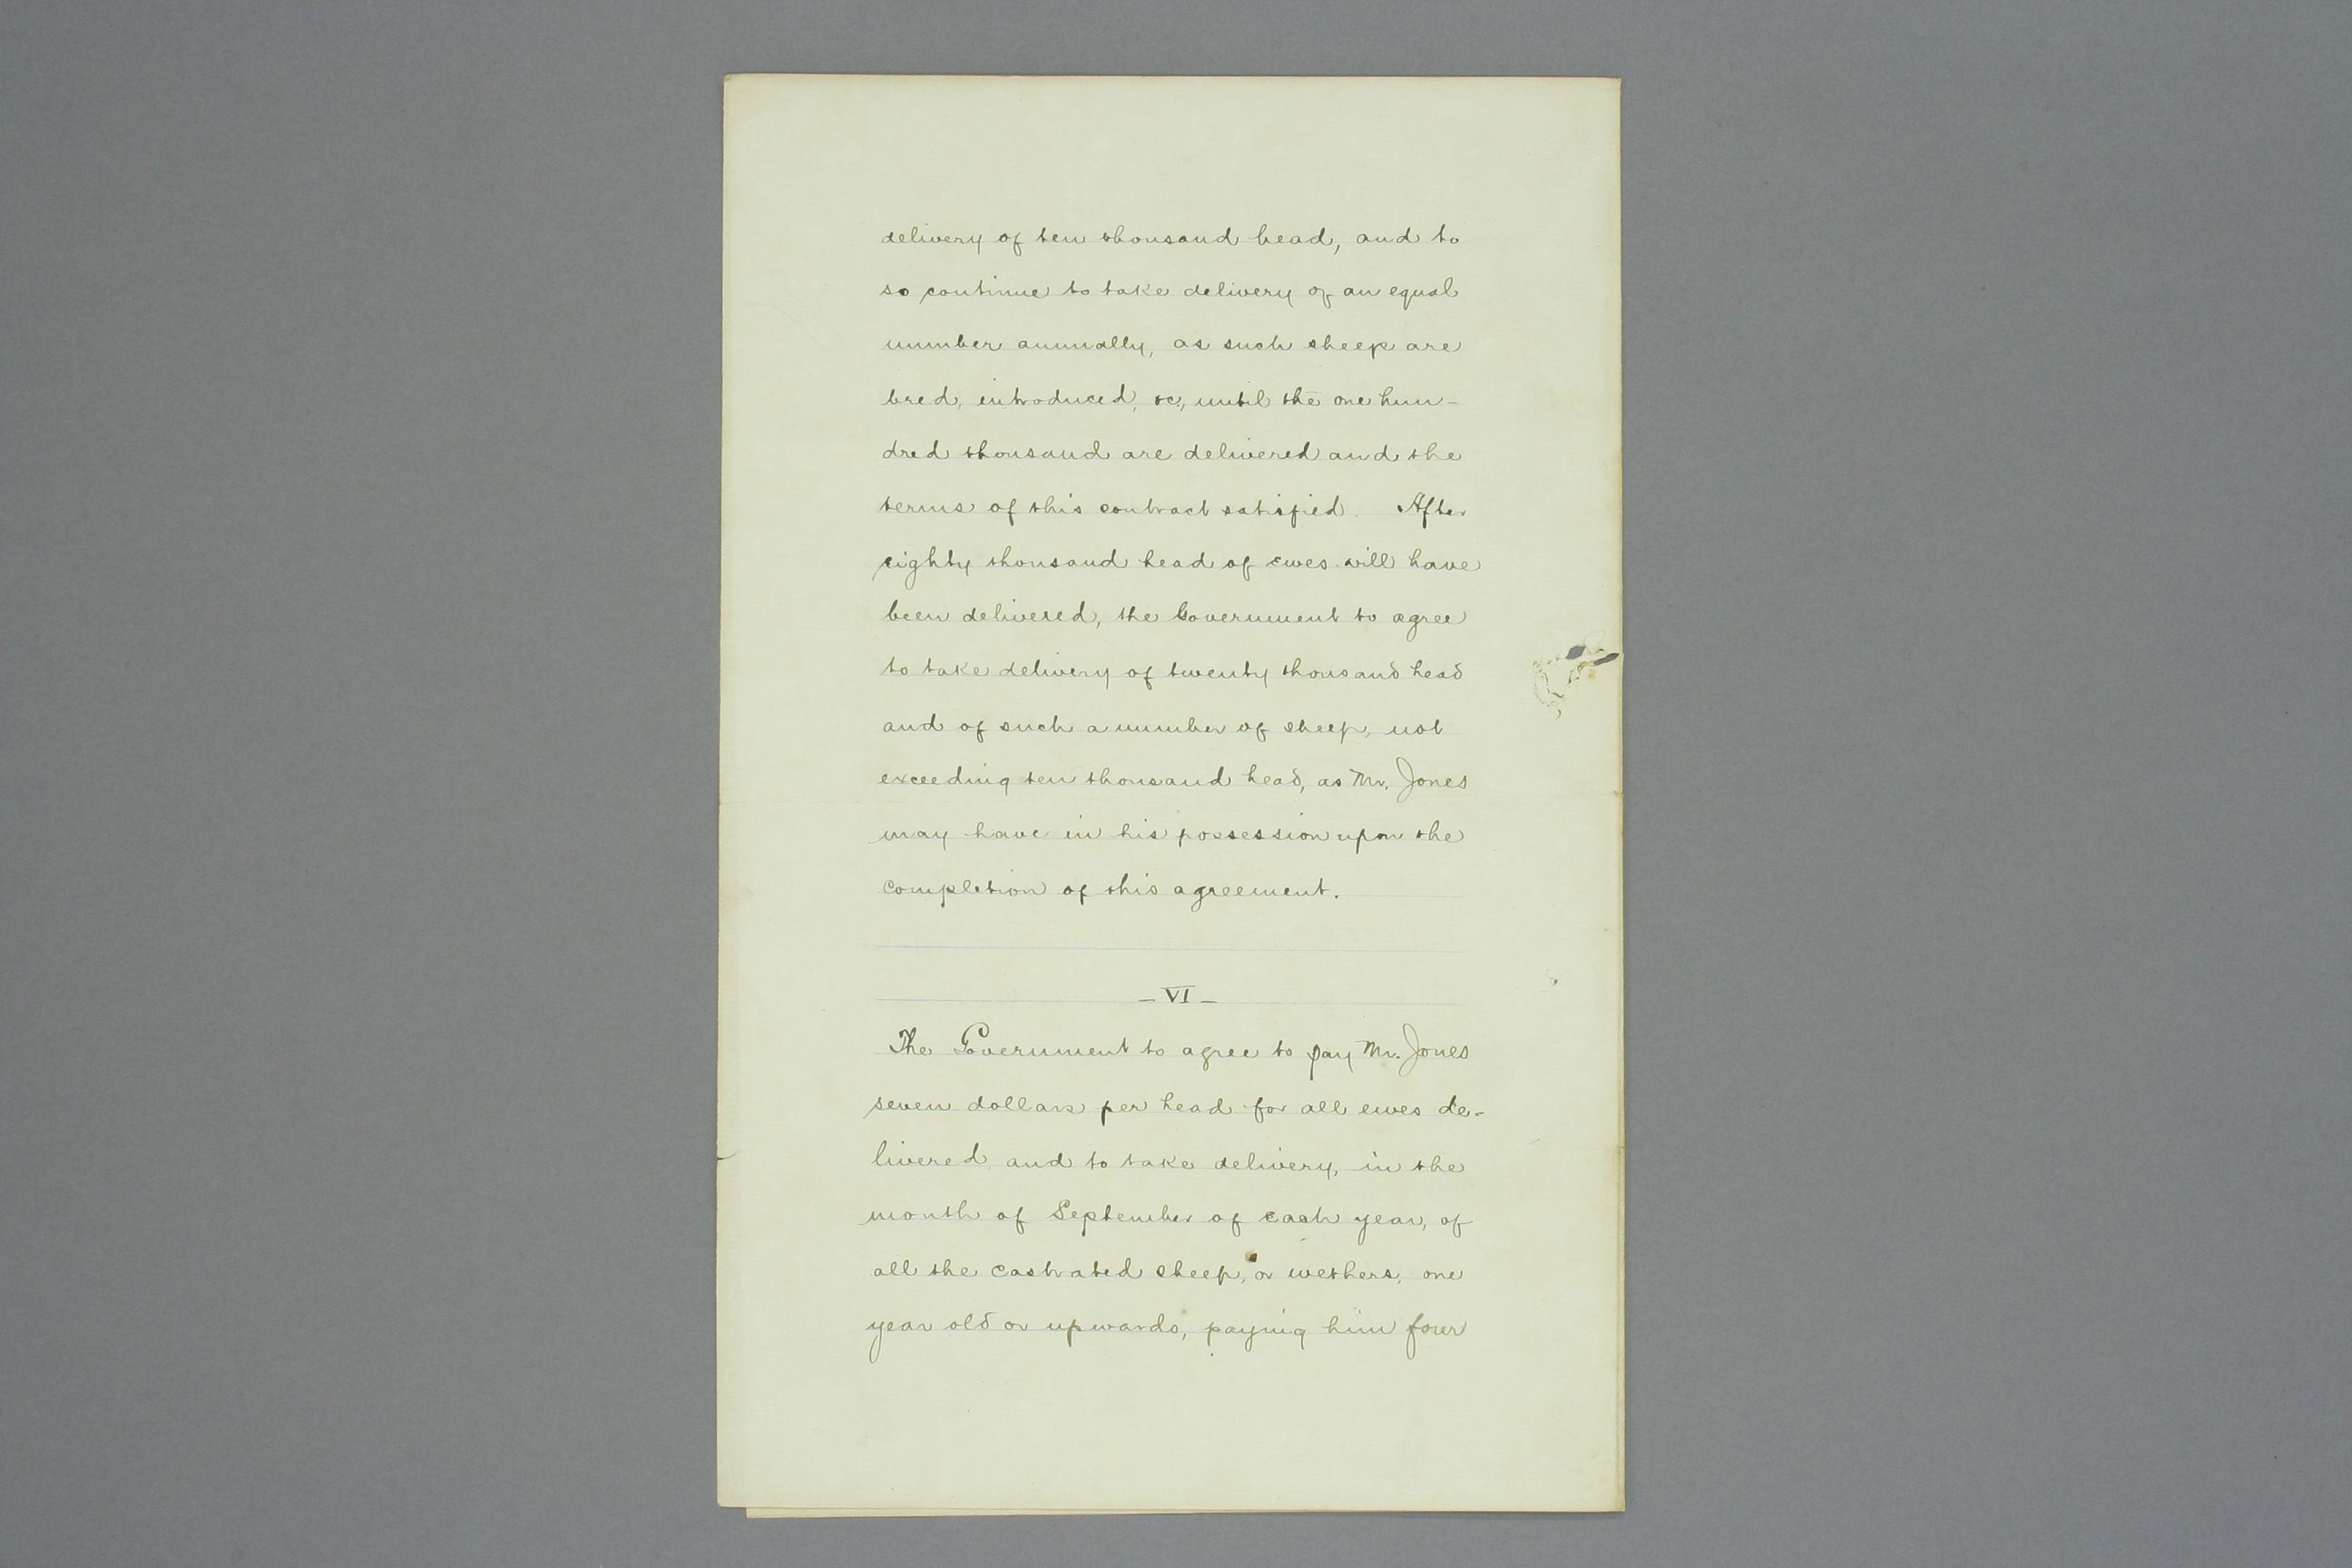 delivery of ten thousand head, and to
so continue to take delivery of an equal
number annually, as such sheep are
bred, introduced, &c, until the one hun-
dred thousand are delivered and the
terms of this contract satisfied. After
eighty thousand head of ewes will have
been delivered, the Government to agree
to take delivery of twenty thousand head
and of such a number of sheep, not
exceeding ten thousand head, as Mr. Jones
may have in his possession upon the
completion of this agreement.
- VI -
The Government to agree to pay Mr. Jones
seven dollars per head for all ewes de-
livered, and to take delivery, in the
month of September of each year, of
all the castrated sheep, or wethers, one
year old or upwards, paying him four